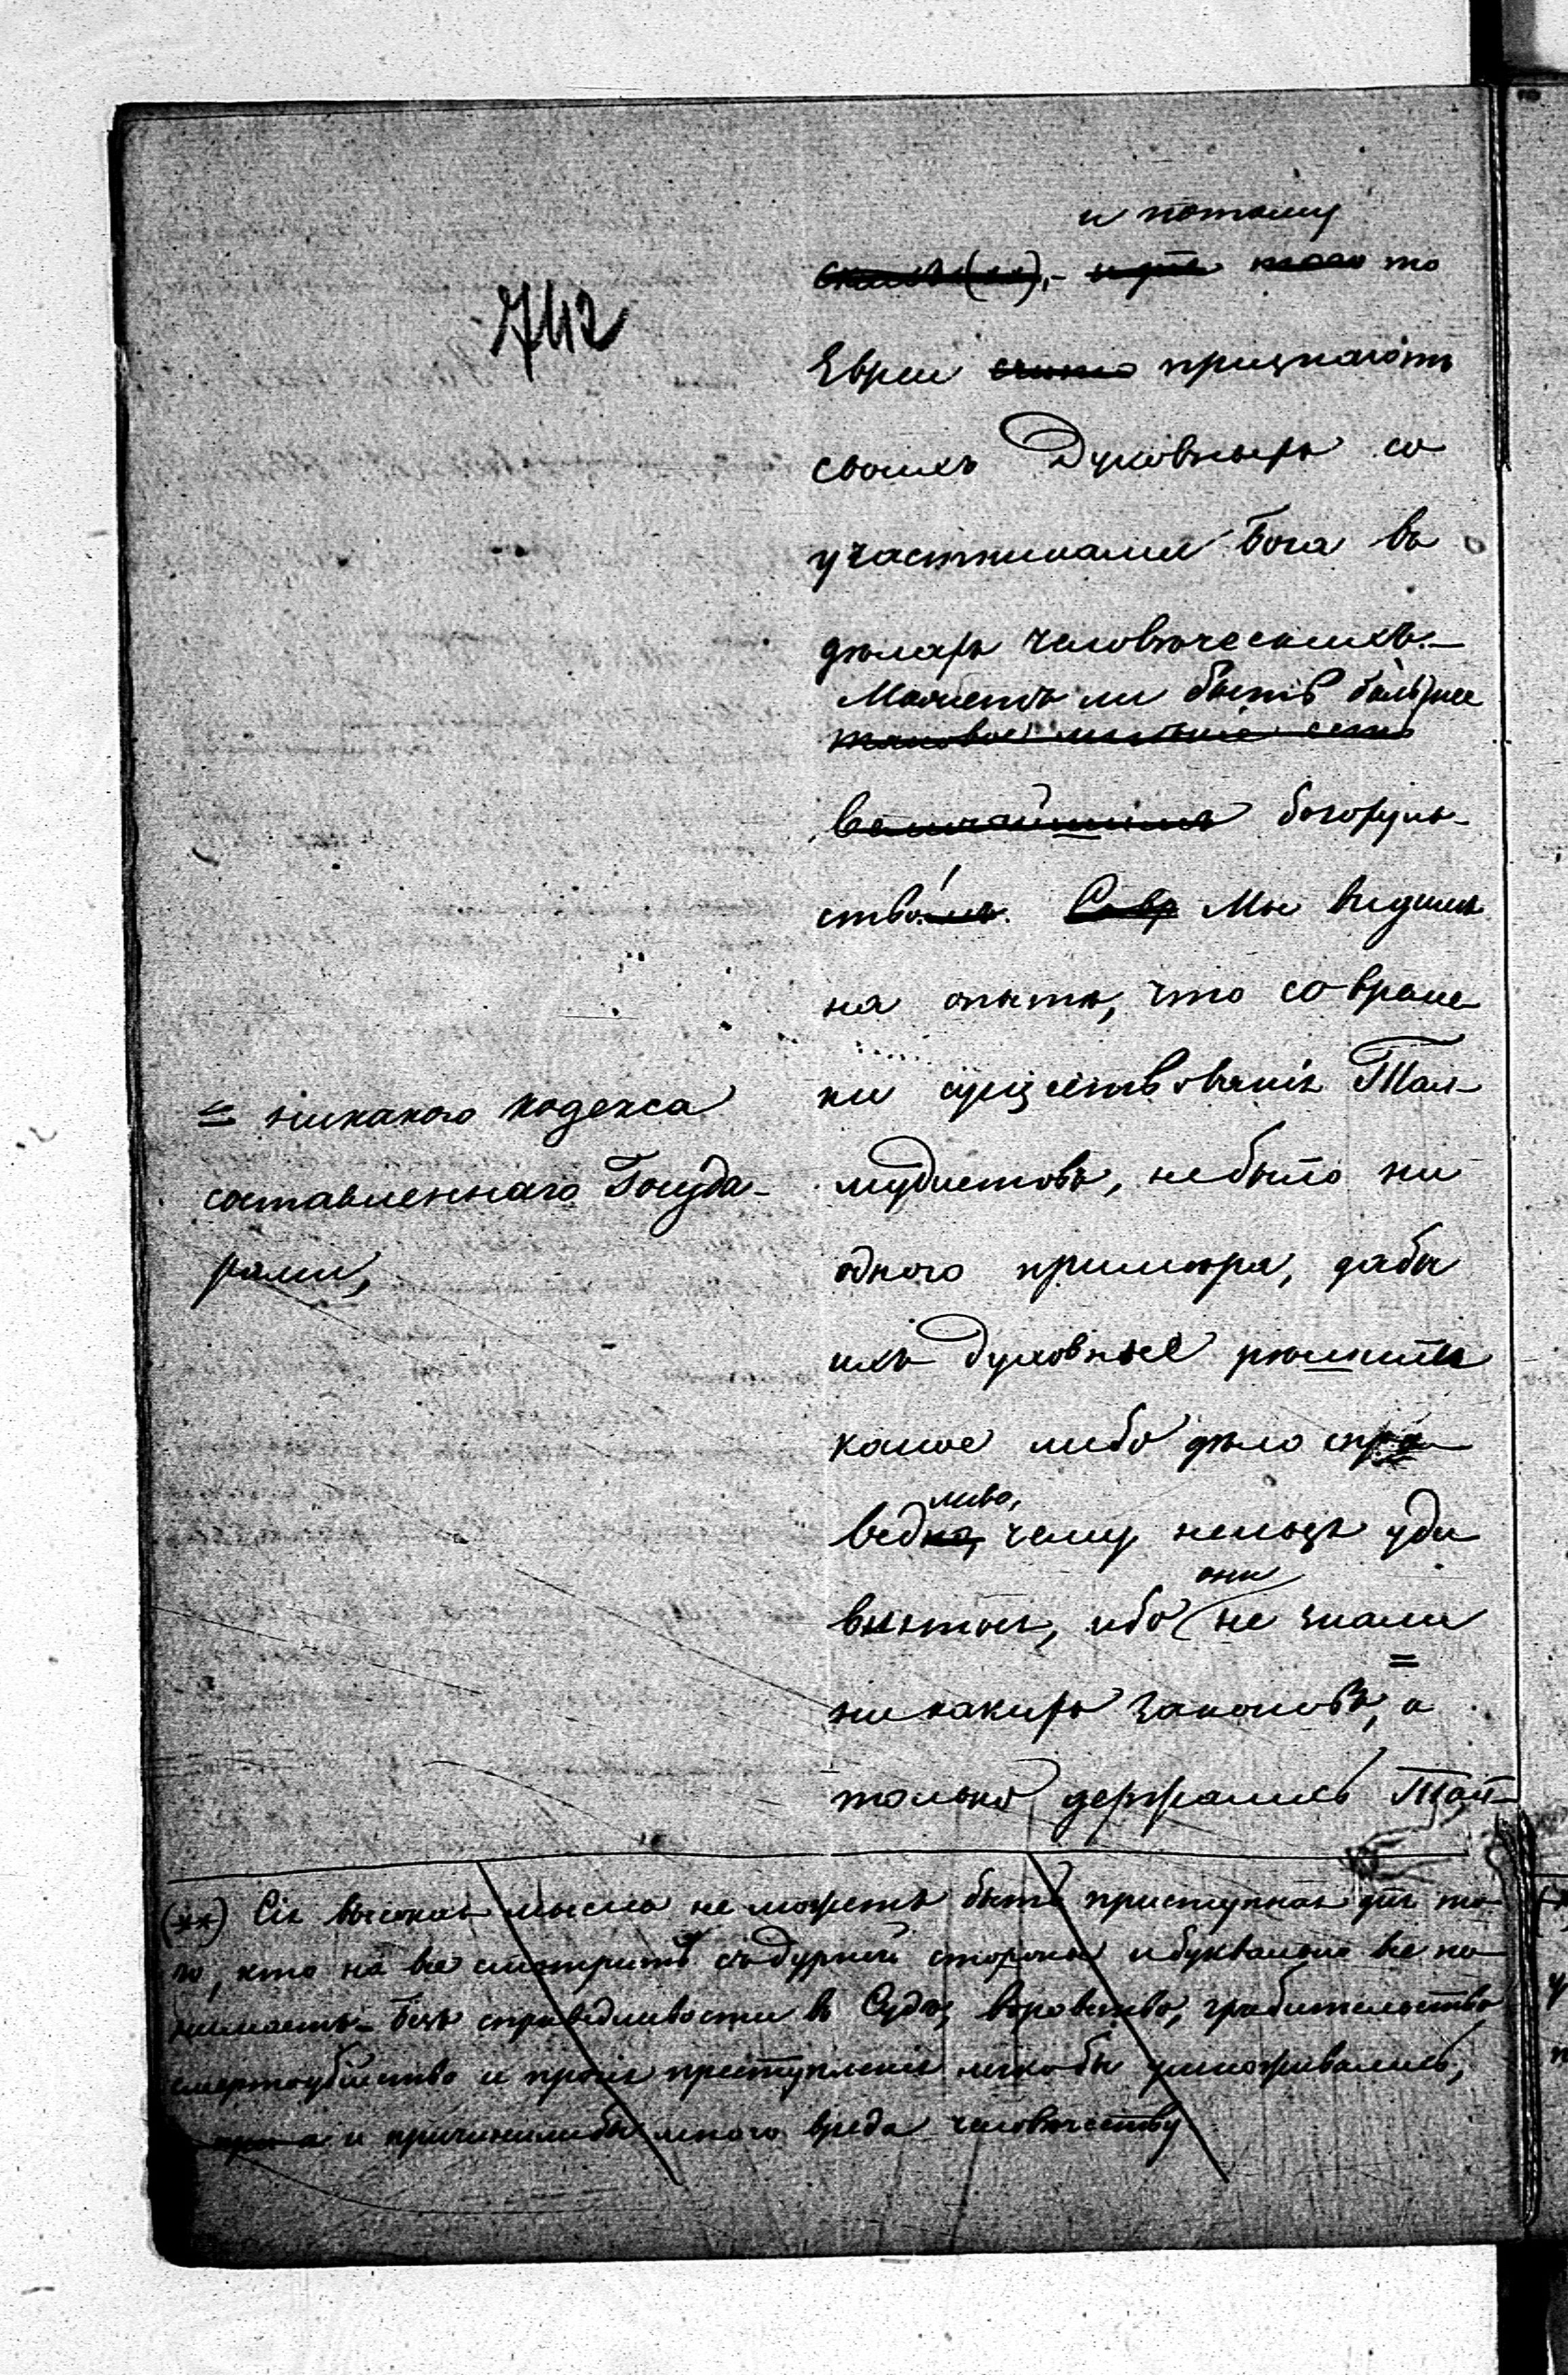 742
и потому
то
Евреи признаютъ
своихъ Духовныхъ со
участниками Бога въ
дѣлахъ человѣческихъ. —
Можетъ ли быть большее
таковое мнѣніе есть
величайшимъ богохуль-
ство. Мы видимъ
на опытѣ, что со време-
ни существованія Тал-
мудистовъ, небыло ни
одного примѣра, дабы
ихъ Духовные рѣшили
какое либо дѣло спра-
ливо,
ведно, чему нельзя уди
они
вится, ибо не знали
никакихъ законовъ, = а
только держались Тал-
= никакого кодекса
составленнаго Госуда-
рями,
(**) Сія высокая мысль не можетъ быть приступная для то-
го, кто на все смотритъ съ дурной стороны и буквально все по-
нимаетъ — безъ справедливости въ Судѣ, воровство, грабительство,
смертоубійство и прочія преступленія легко бы умноживались,
и причинили бы много вреда человѣчеству